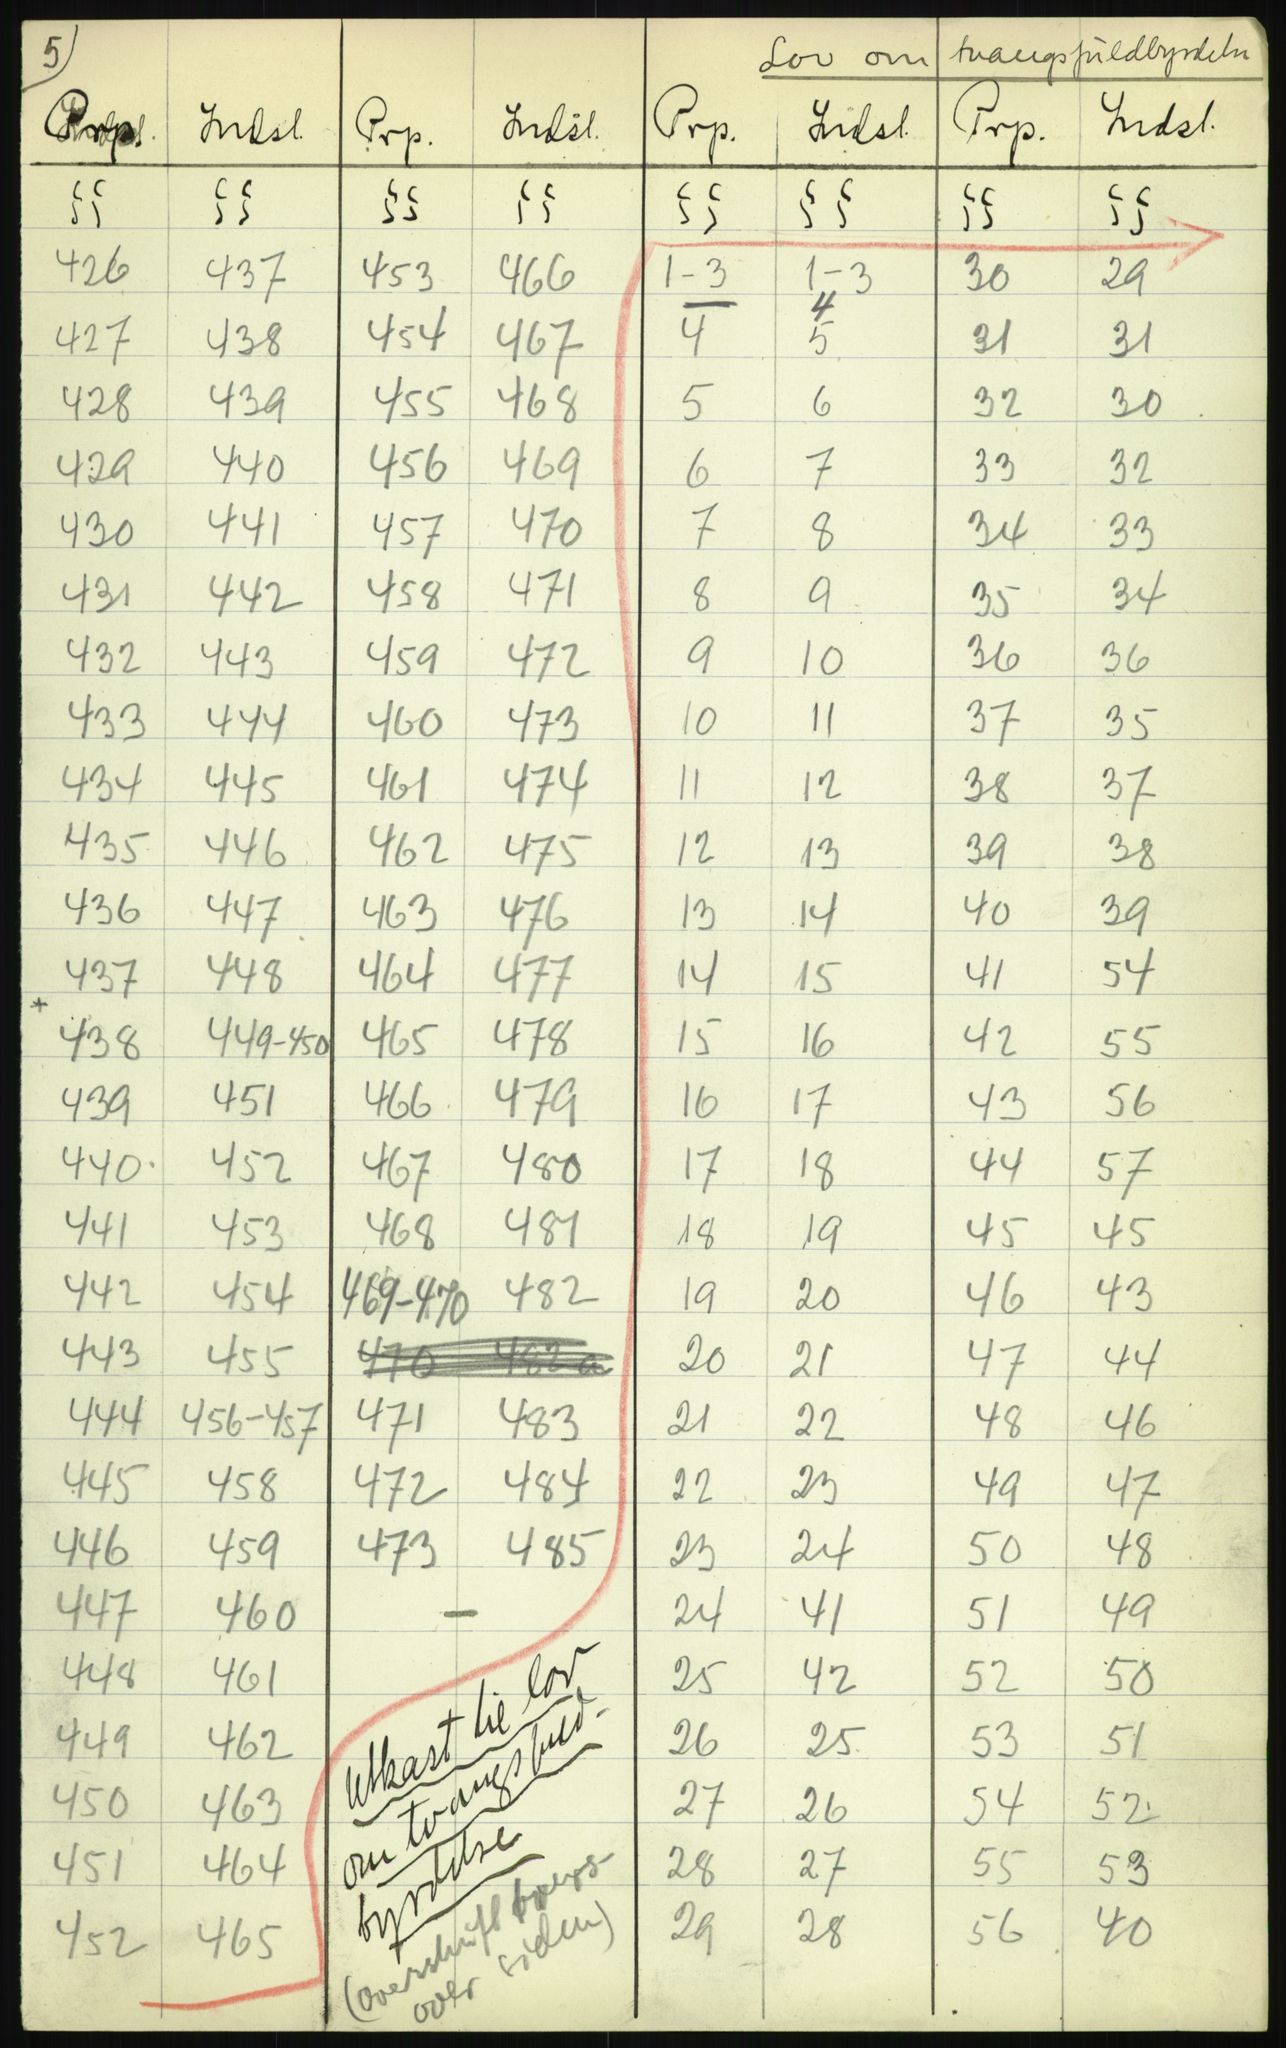 5)
Lov om tvangsfuldbyrdelse
Prp. Indsl. Prp. Indsl. Prp. Indsl. Prp. Indsl.
§§ §§ §§ §§ §§ §§ §§ §§
426 437 453 466 1-3 1-3 30 29
4
427 438 454 467 4 5 31 31
428 439 455 468 5 6 32 30
429 440 456 469 6 7 33 32
430 441 457 470 7 8 34 33
431 442 458 471 8 9 35 34
432 443 459 472 9 10 36 36
433 444 460 473 10 11 37 35
434 445 461 474 11 12 38 37
435 446 462 475 12 13 39 38
436 447 463 476 13 14 40 39
437 448 464 477 14 15 41 54
* 438 449-450 465 478 15 16 42 55
439 451 466 479 16 17 43 56
440 452 467 480 17 18 44 57
441 453 468 481 18 19 45 45
442 454 469-470 482 19 20 46 43
443 455 470 482a 20 21 47 44
444 456-457 471 483 21 22 48 46
445 458 472 484 22 23 49 47
446 459 473 485 23 24 50 48
447 460 — 24 41 51 49
448 461 25 42 52 50
449 462 26 25 53 51
450 463 27 26 54 52
451 464 28 27 55 53
452 465 29 28 56 40
Utkast til lov
om tvangsfuld-
byrdelse
(overskrift
over siden)